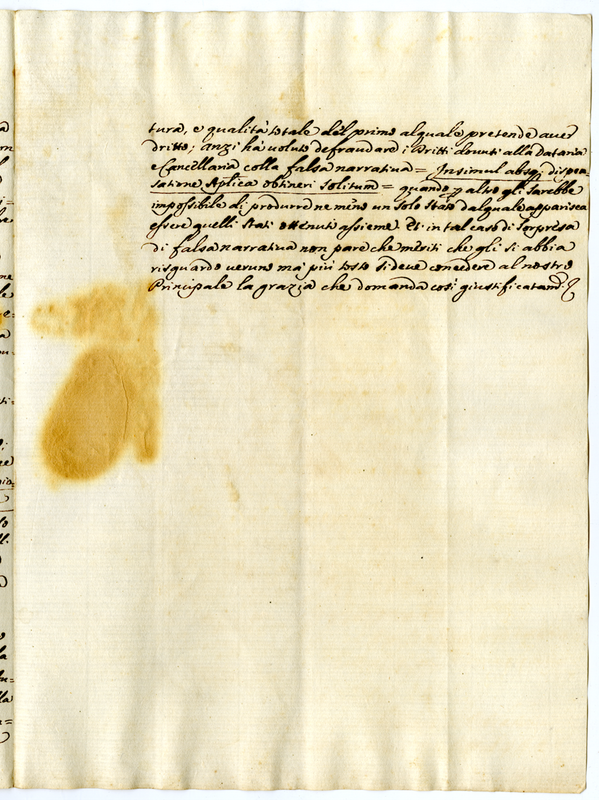 tura, e qualità totale del primo al quale pretende aver
dritto; anzi hà voluto defraudare i dritti dovuti alla Dataria
e Cancellaria colla falsa narrativa = Insimul absq; dispen-
satione Aplica obtineri Solitum = quando p altro gli sarebbe
impossibile di produrre ne meno un Solo Stato dal quale apparisca
essere quelli Stati ottenuti assieme. Et in tal caso di Sorpresa
di falsa narrativa non pare che meriti che gli si abbia
risguardo veruno mà più tosto si deve concedere al nostro
Principale la grazia che domanda così giustificatam.